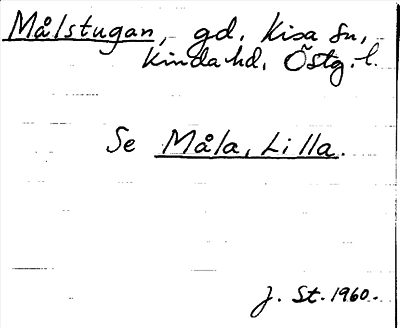 Målstugan, gd, Kisa sn,
Kinda hd, Östg. l.
Se Måla, Lilla.
J. St. 1960.